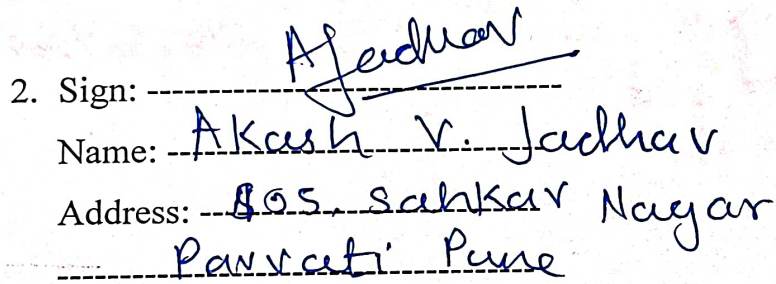 2. Sign: AJadhav
Name: Akash V. Jadhav
Address: 805, Sahkar Nagar
Parvati Pune